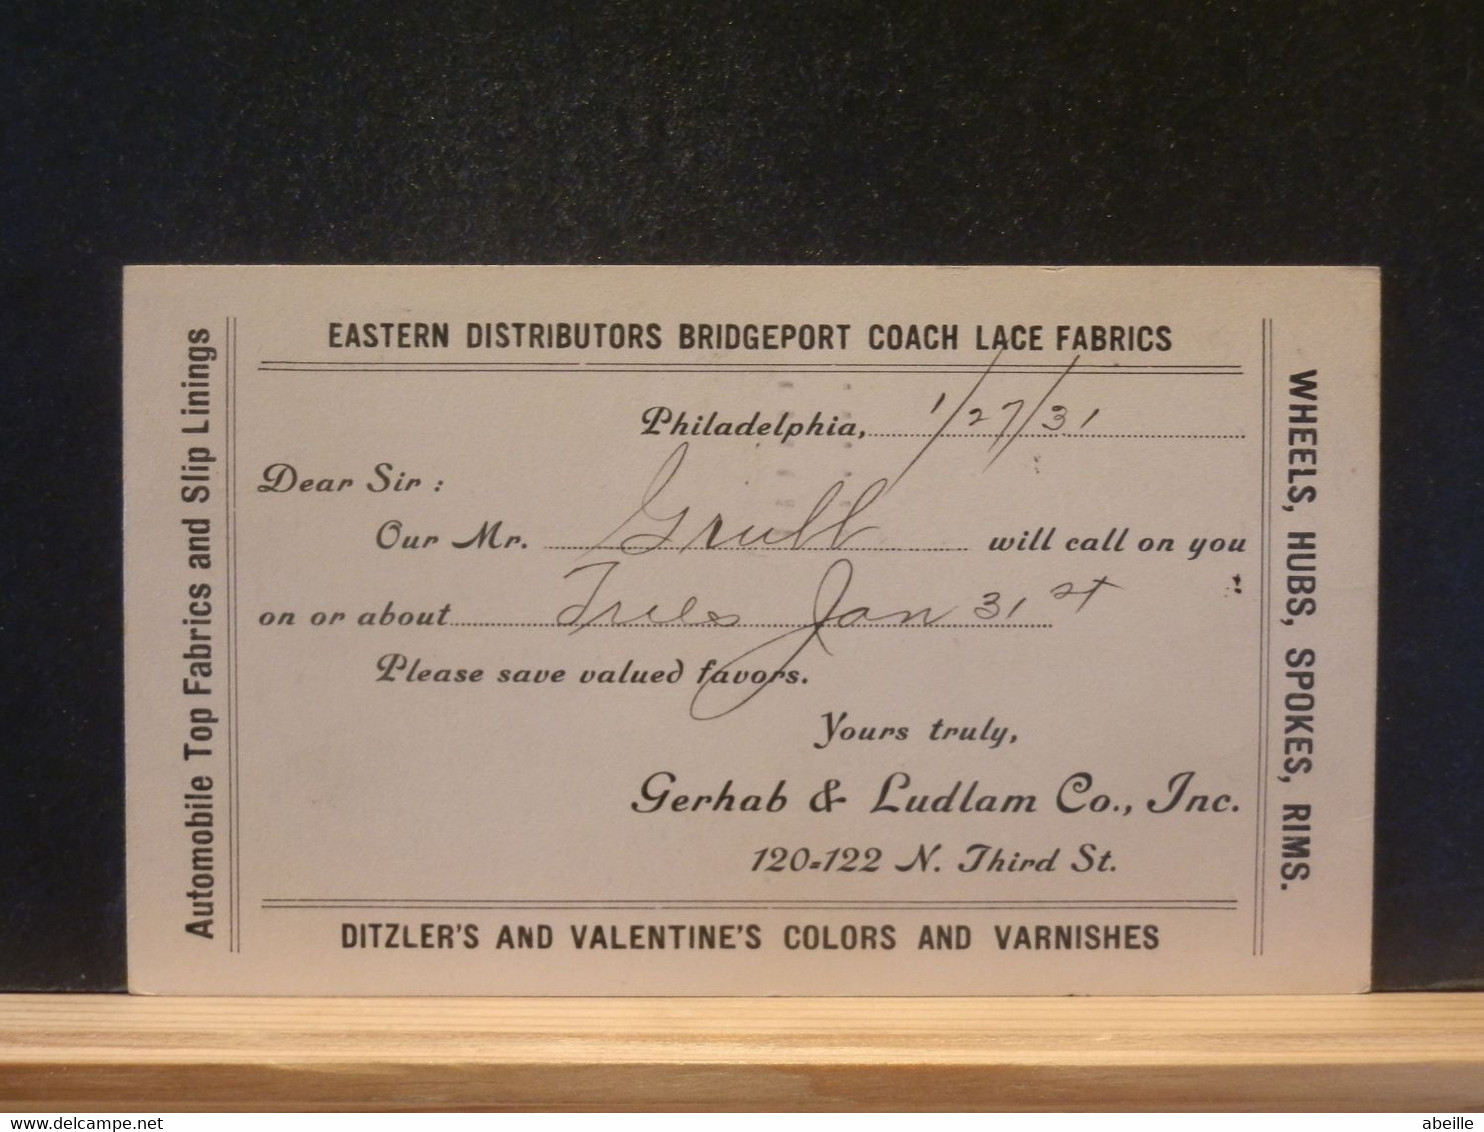 EASTERN DISTRIBUTORS BRIDGEPORT COACH LACE FABRICS
Automobile Top Fabrics and Slip Linings
Philadelphia, 1/27/31
Dear Sir :
Our Mr. Grull will call on you
on or about Jan 31 st
Please save valued favors.
Yours truly,
Gerhab & Ludlam Co., Inc.
120=122 N. Third St.
DITZLER'S AND VALENTINE'S COLORS AND VARNISHES
WHEELS, HUBS, SPOKES, RIMS.
www.delcampe.net
abeille